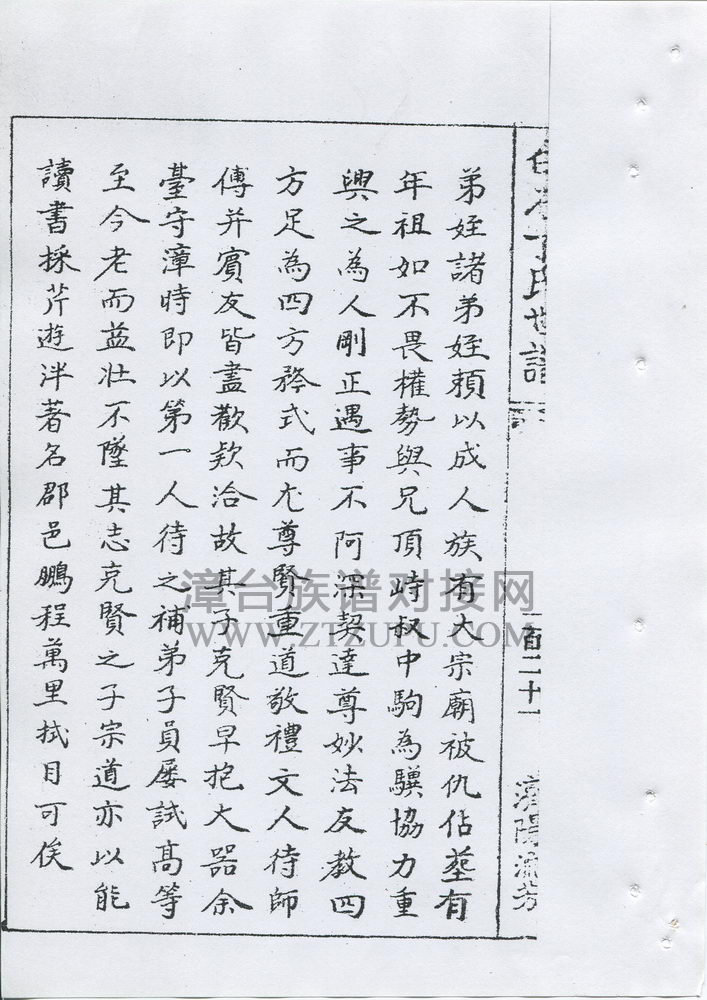 白石丁氏世譜
一百二十一
漳陽流芳
弟姪諸弟姪頼以成人族有大宗廟被仇佔塟有
年祖如不畏權勢與兄頂峙叔中駒為驥協力重
興之為人剛正遇事不阿深契達尊妙法友教四
方足為四方矜式而尤尊賢重道敬禮文人待師
傅并賓友皆盡歡欵洽故其子克賢早抱大器余
臺守漳時即以第一人待之補弟子員屡試高等
至今老而益壮不墜其志克賢之子宗道亦以能
讀書採芹遊泮著名郡邑鵬程萬里拭目可俟
漳台族谱对接网
WWW.ZTZUPU.COM